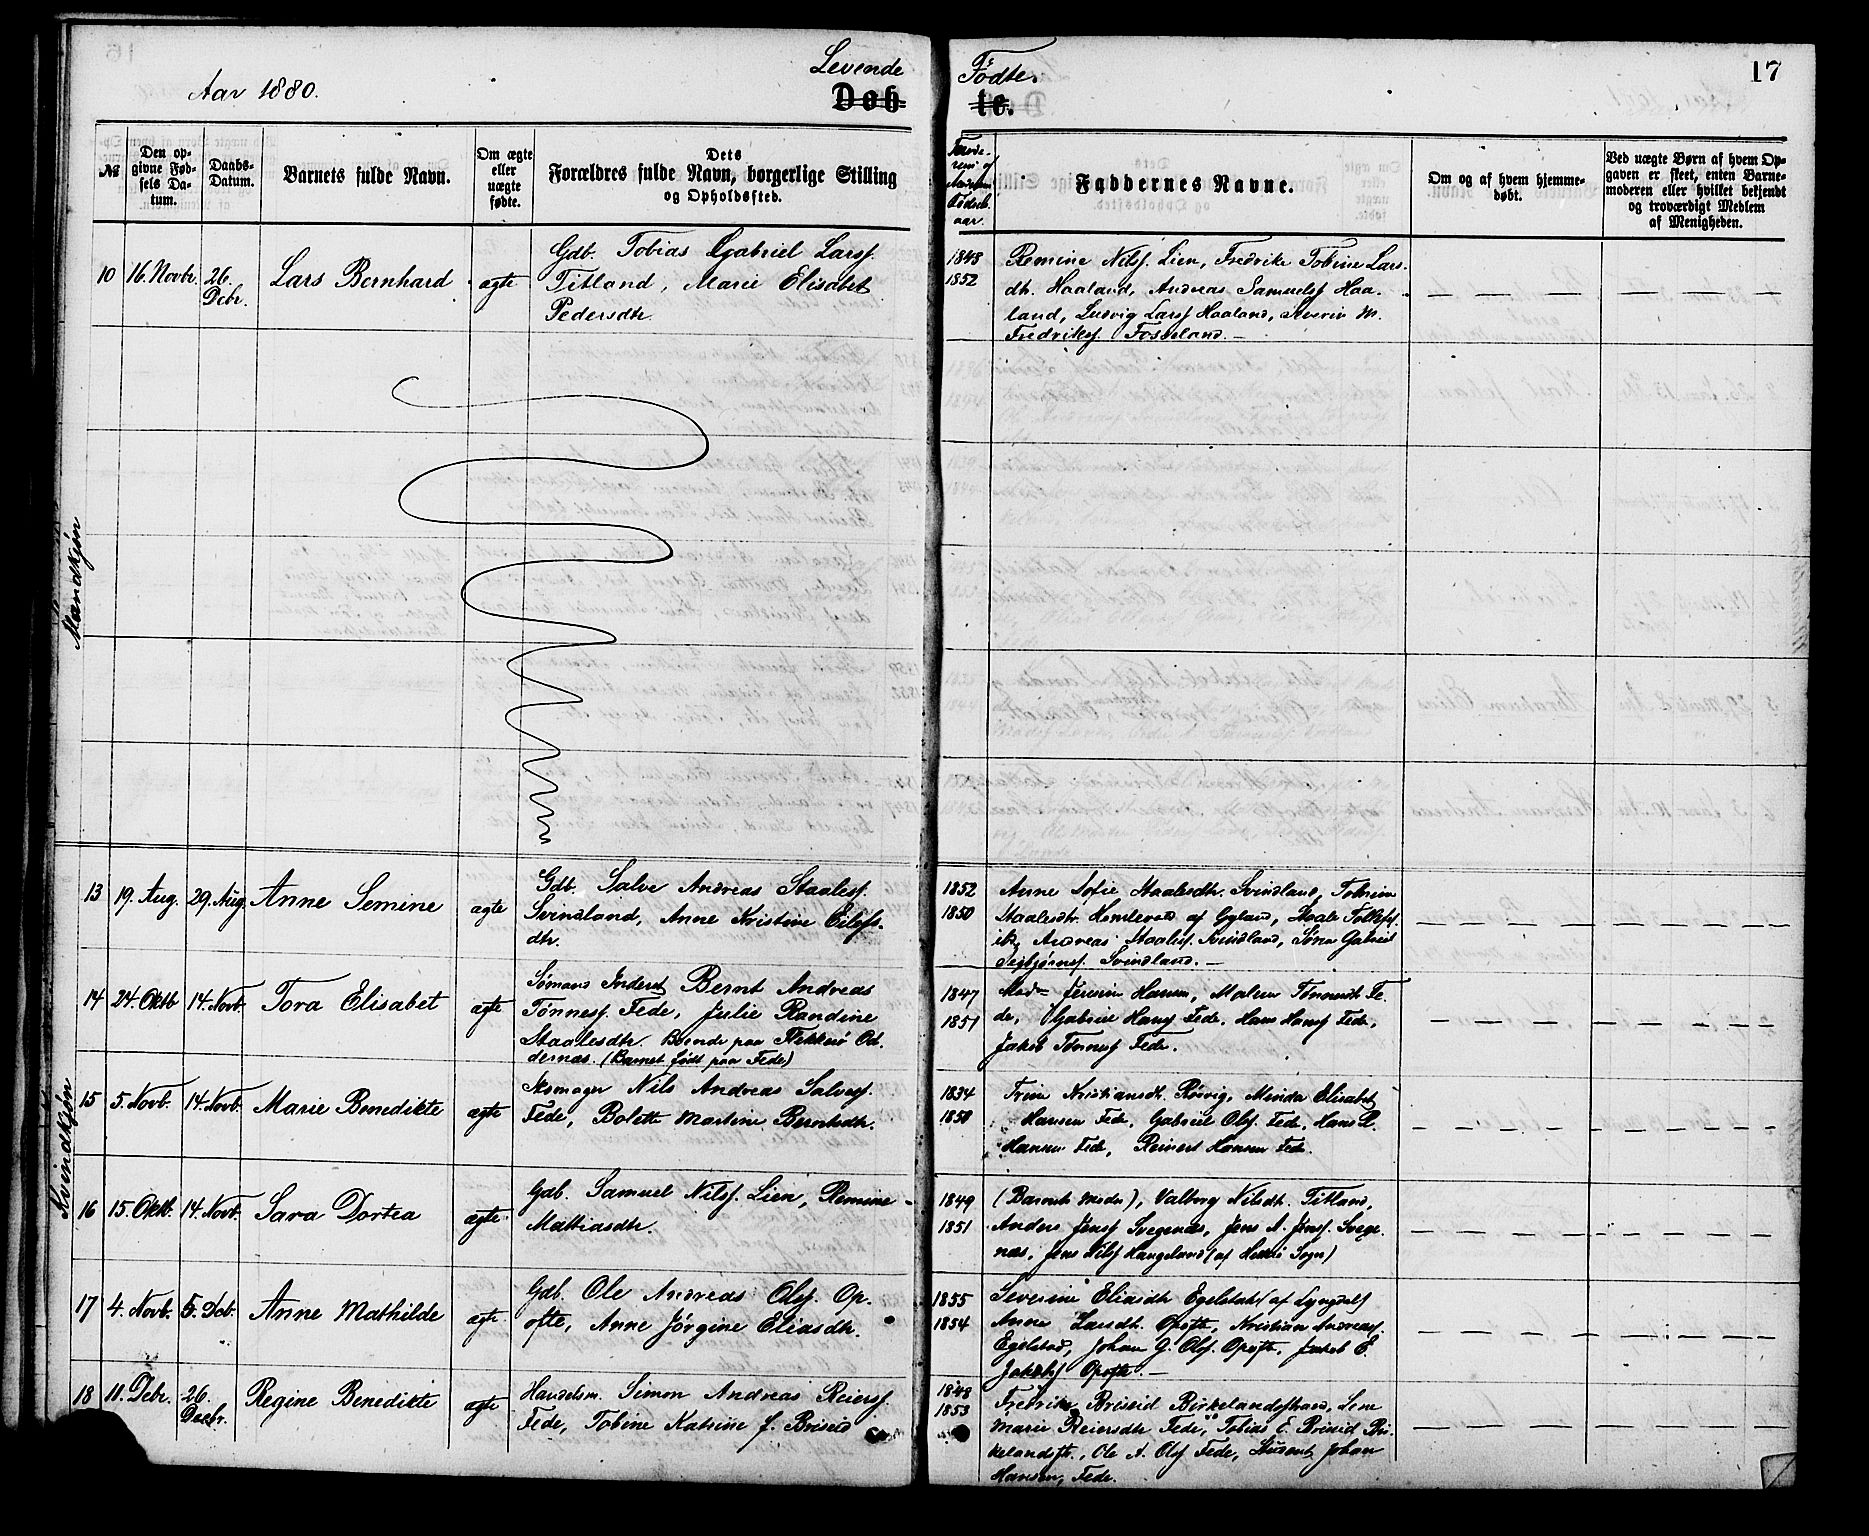 Aar 1880.
Levende
Døb-
Fødte.
te.
17
№
Den op-
givne Fød-
sels Da-
tum.
Daabs-
Datum.
Barnets fulde Navn.
Om ægte
eller
uægte
fødte.
Dets
Forældres fulde Navn, borgerlige Stilling
og Opholdssted.
Fødsels-
aar.
Faddernes Navne.
Om og af hvem hjemme-
døbt.
Ved uægte Børn af hvem Op-
gaven er skeet, enten Barne-
moderen eller hvilket bekjendt
og troværdigt Medlem
af Menigheden.
Mandkjøn
10 16 Novbr. 26. Debr. Lars Bernhard ægte
Gdb. Tobias Gabriel Larss.
Titland, Marie Elisabet
Pedersdtr.
1848
1852
Remine Nilsf. Lien, Fredrike Tobine Lars-
dtr. Haaland, Andreas Samuelsf. Haa-
land, Ludvig Larsf Haaland, Severin M.
Fredriksf. Fosseland. —
Kvindekjøn
13 19. Aug. 29. Aug. Anne Semine ægte
Gdb. Salve Andreas Staalesf.
Svindland, Anne Kristine Eilefs-
dtr.
1852
1850
Anne Sofie Staalesdtr. Svindland, Tobine
Staalesdtr. Homlevold af Gyland, Staale Tollefsf.
ib., Andreas Staalesf. Svindland, Søren Gabriel
Sigbjørnsf. Svindland. —
14 24. Oktb. 14. Novb. Tora Elisabet ægte
Sømand Inderst Bernt Andreas
Tønnesf. Fede, Julie Randine
Staalesdtr. Boende paa Flekkerø Od-
dernes. (Barnet født paa Fede)
1847
1851
Mad. Jensine Hansen, Malene Tønnesdtr. Fe-
de, Gabriel Hansf Fede, Hans Hansf Fede,
Jakob Tønnesf Fede.
15 5. Novb. 14. Novb. Marie Benedikte ægte
Skomager Nils Andreas Salvesf.
Fede, Bolette Martine Berntsdtr.
1834
1850
Trine Kristiansdtr. Rørvig, Minda Elisabet
Hansen Fede, Gabriel Olsf. Fede, Hans R.
Hansen Fede, Reinert Hansen Fede.
16 15. Oktb. 14. Novb. Sara Dortea ægte
Gdb. Samuel Nilsf. Lien, Remine
Mathiasdtr.
1849
1851
(Barnets Moder), Valborg Nilsdtr. Titland,
Anders Jensf Svegenæs, Jens A. Jensf. Svege-
næs, Jens Nilsf Haugeland (af Sogn)
17 4. Novb. 5. Deb. Anne Mathilde ægte
Gdb. Ole Andreas Olsf. Op-
ofte, Anne Jørgine Eliasdtr.
1855
1854
Severine Eliasdtr Egelstad (af Lyngdal)
Anna Larsdtr. Opofte, Kristian Andreasf.
Egelstad, Johan G. Olsf. Opofte, Jakob E.
Jakobsf Opofte. —
18 11. Debr. 26. Decbr. Regine Benedikte ægte
Handelsm. Simon Andreas Reiersf.
Fede, Tobine Katrine f. Briseid
1848
1853
Fredrike Briseid Birkelandsstrand, Lene
Marie Reiersdtr Fede, Tobias E. Briseid Bir-
kelandsstr., Ole A. Olsf Fede, Student Johan
Hansen, Fede.